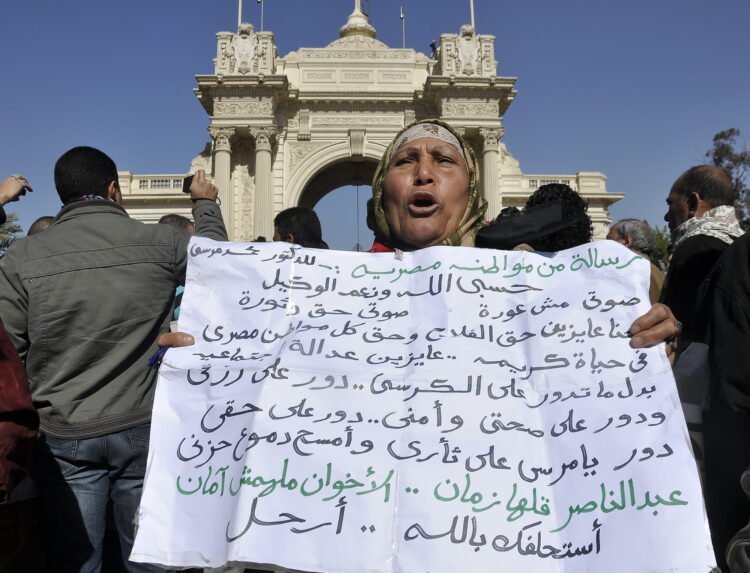 رسالة من مواطنه مصريه .. للدكتور محمد مرسى
حسبى الله ونعم الوكيل
صوتى مش عورة صوتى حق وثورة
إحنا عايزين حق الفلاح وحق كل مواطن مصرى
فى حياة كريمه .. عايزين عدالة إجتماعيه
بدل ما تدور على الكرسى .. دور على رزقى
ودور على صحتى وأمنى .. دور على حقى
دور يامرسى على ثأرى وأمسح دموع حزنى
عبد الناصر قلها زمان .. الأخوان ملهمش أمان
أستحلفك بالله .. أرحل